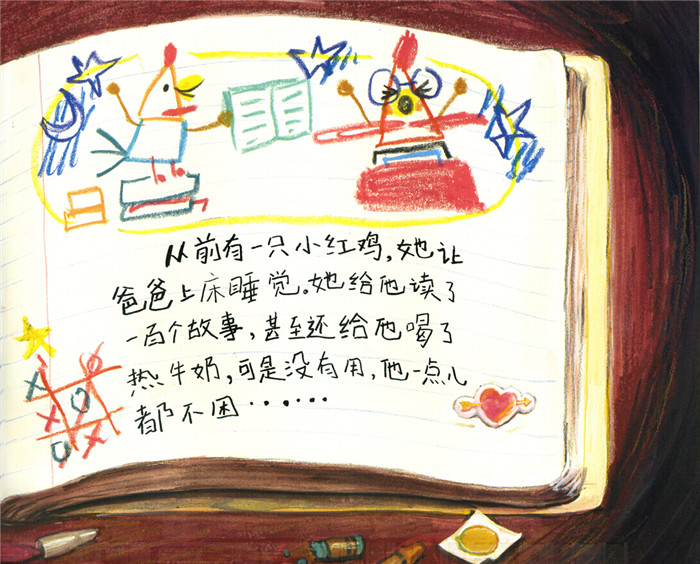 从前有一只小红鸡，她让
爸爸上床睡觉。她给他读了
一百个故事，甚至还给他喝了
热牛奶，可是没有用，他一点儿
都不困……